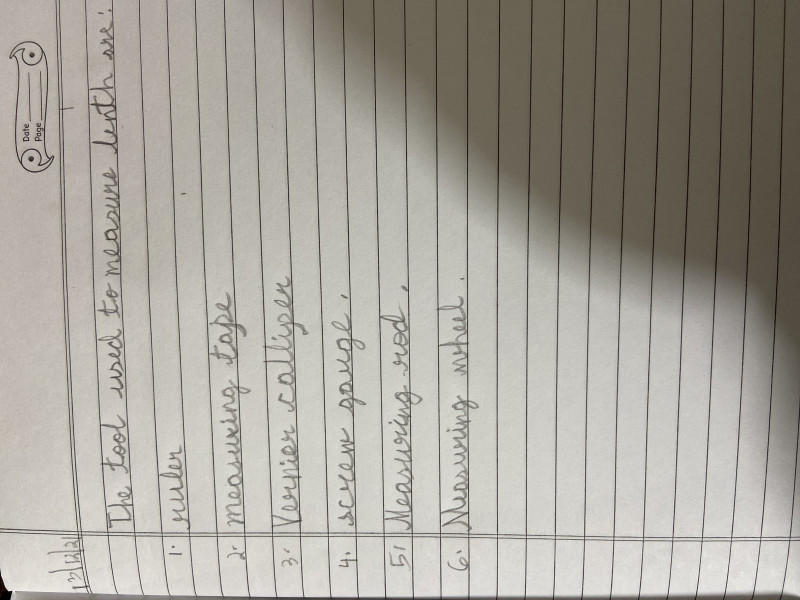 Date
Page
The tool used to measure lenth are:
1. ruler
2. measuring tape
3. Vernier calliper
4. screw gauge.
5. Measuring rod.
6. Measuring wheel.